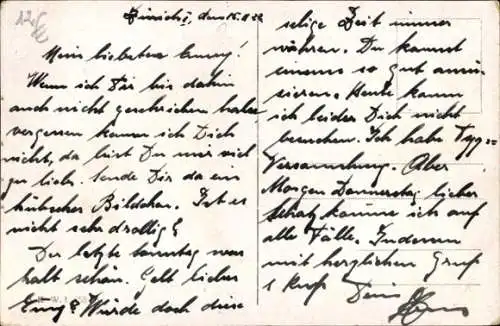 Zürich, den 15.II.22
Mein liebstes Emmy!
Wenn ich Dir bis dahin
auch nicht geschrieben habe
vergessen kann ich Dich
nicht, da bist Du mir viel
zu lieb. Sende Dir da ein
hübsches Bildchen. Ist es
nicht sehr drollig?
Der letzte Sonntag war
halt schön. Gelt liebes
Emy? Würde doch diese
selige Zeit immer
währen. Du kannst
einem so gut amü-
sieren. Heute kann
ich leider Dich nicht
besuchen. Ich habe
Versammlung. Aber
Morgen Donnerstag lieber
Schatz komme ich auf
alle Fälle. Indessen
mit herzlichen Gruss
& Kuss Dein